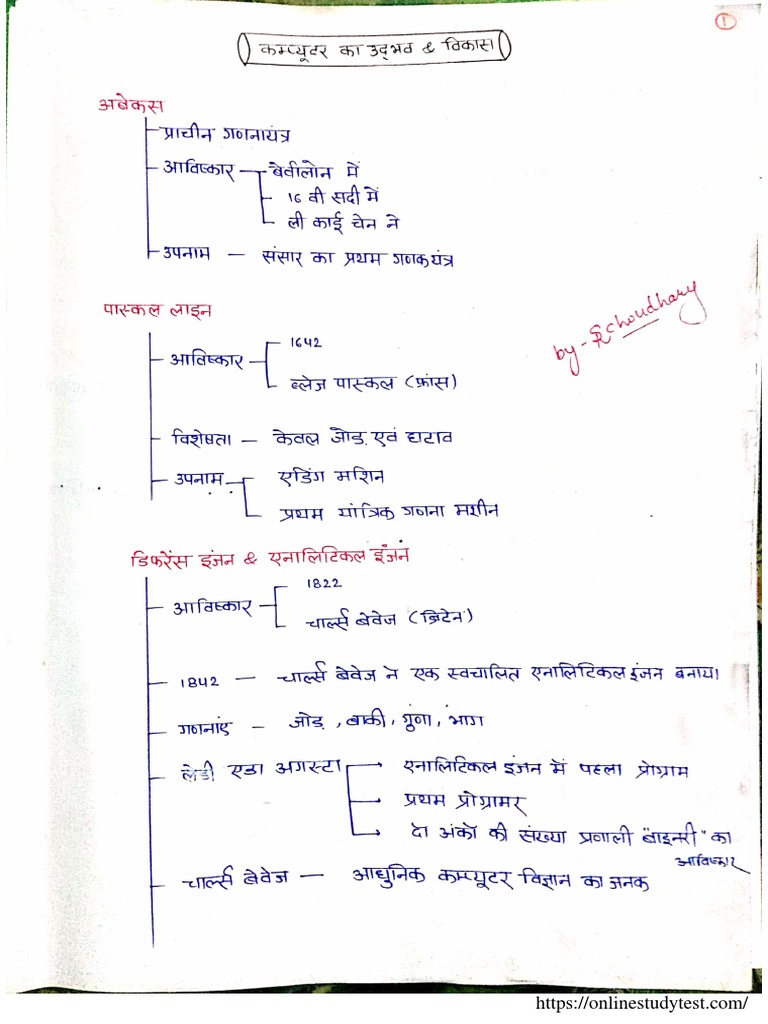 1
कम्प्यूटर का उद्भव & विकास
अबेकस
प्राचीन गणनायंत्र
आविष्कार — बेवीलोन में
16 वी सदी में
ली काई चेन ने
उपनाम — संसार का प्रथम गणकयंत्र
पास्कल लाइन
by - Choudhary
1642
आविष्कार
ब्लेज पास्कल (फ्रांस)
विशेषता — केवल जोड़ एवं घटाव
उपनाम — एडिंग मशिन
प्रथम यांत्रिक गणना मशीन
डिफरेंस इंजन & एनालिटिकल इंजन
1822
आविष्कार
चार्ल्स बेवेज (ब्रिटेन)
1842 — चार्ल्स बेवेज ने एक स्वचालित एनालिटिकल इंजन बनाया।
गणनाएं — जोड़, बाकी, गुणा, भाग
लेडी एडा अगस्टा → एनालिटिकल इंजन में पहला प्रोग्राम
→ प्रथम प्रोग्रामर
→ दो अंको की संख्या प्रणाली "बाइनरी" का
आविष्कार
चार्ल्स बेवेज — आधुनिक कम्प्यूटर विज्ञान का जनक
https://onlinestudytest.com/